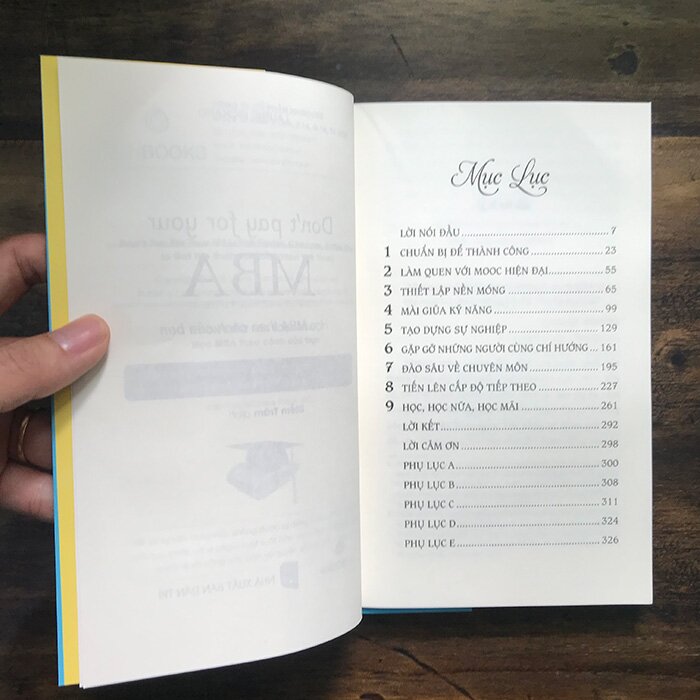 Don't pay for your
MBA
NHÀ XUẤT BẢN DÂN TRÍ
Mục Lục
LỜI NÓI ĐẦU 7
1 CHUẨN BỊ ĐỂ THÀNH CÔNG 23
2 LÀM QUEN VỚI MOOC HIỆN ĐẠI 55
3 THIẾT LẬP NỀN MÓNG 65
4 MÀI GIŨA KỸ NĂNG 99
5 TẠO DỰNG SỰ NGHIỆP 129
6 GẶP GỠ NHỮNG NGƯỜI CÙNG CHÍ HƯỚNG 161
7 ĐÀO SÂU VỀ CHUYÊN MÔN 195
8 TIẾN LÊN CẤP ĐỘ TIẾP THEO 227
9 HỌC, HỌC NỮA, HỌC MÃI 261
LỜI KẾT 292
LỜI CẢM ƠN 298
PHỤ LỤC A 300
PHỤ LỤC B 308
PHỤ LỤC C 311
PHỤ LỤC D 324
PHỤ LỤC E 326